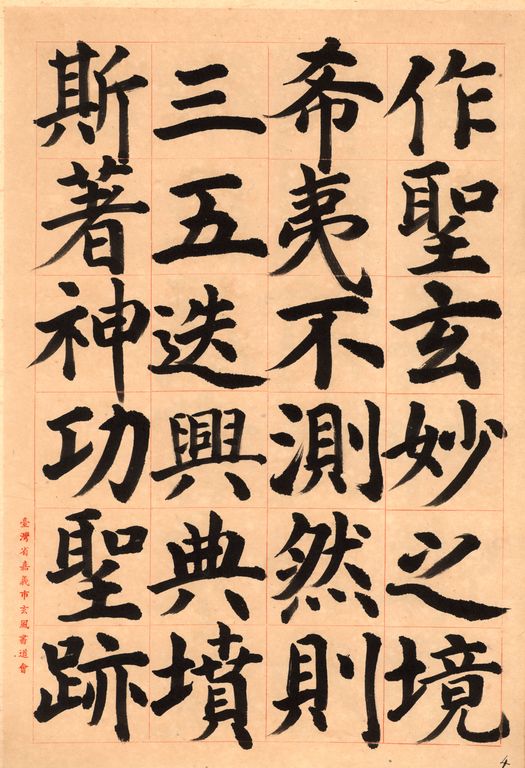 作聖玄妙之境
希夷不測然則
三五迭興典墳
斯著神功聖跡
臺灣省嘉義市玄風書道會
4